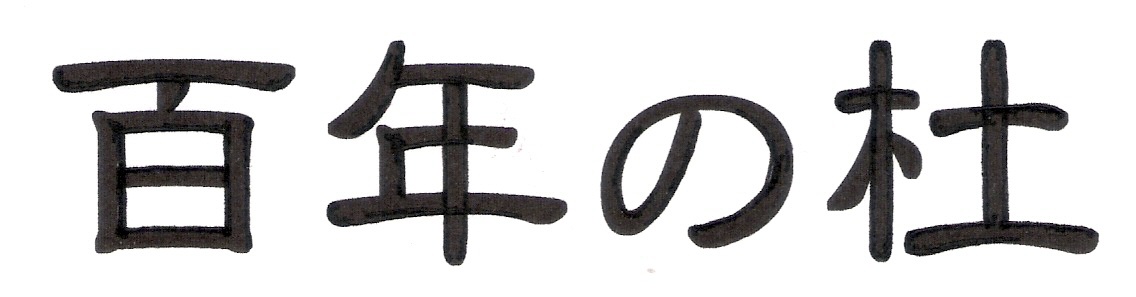 百年の杜